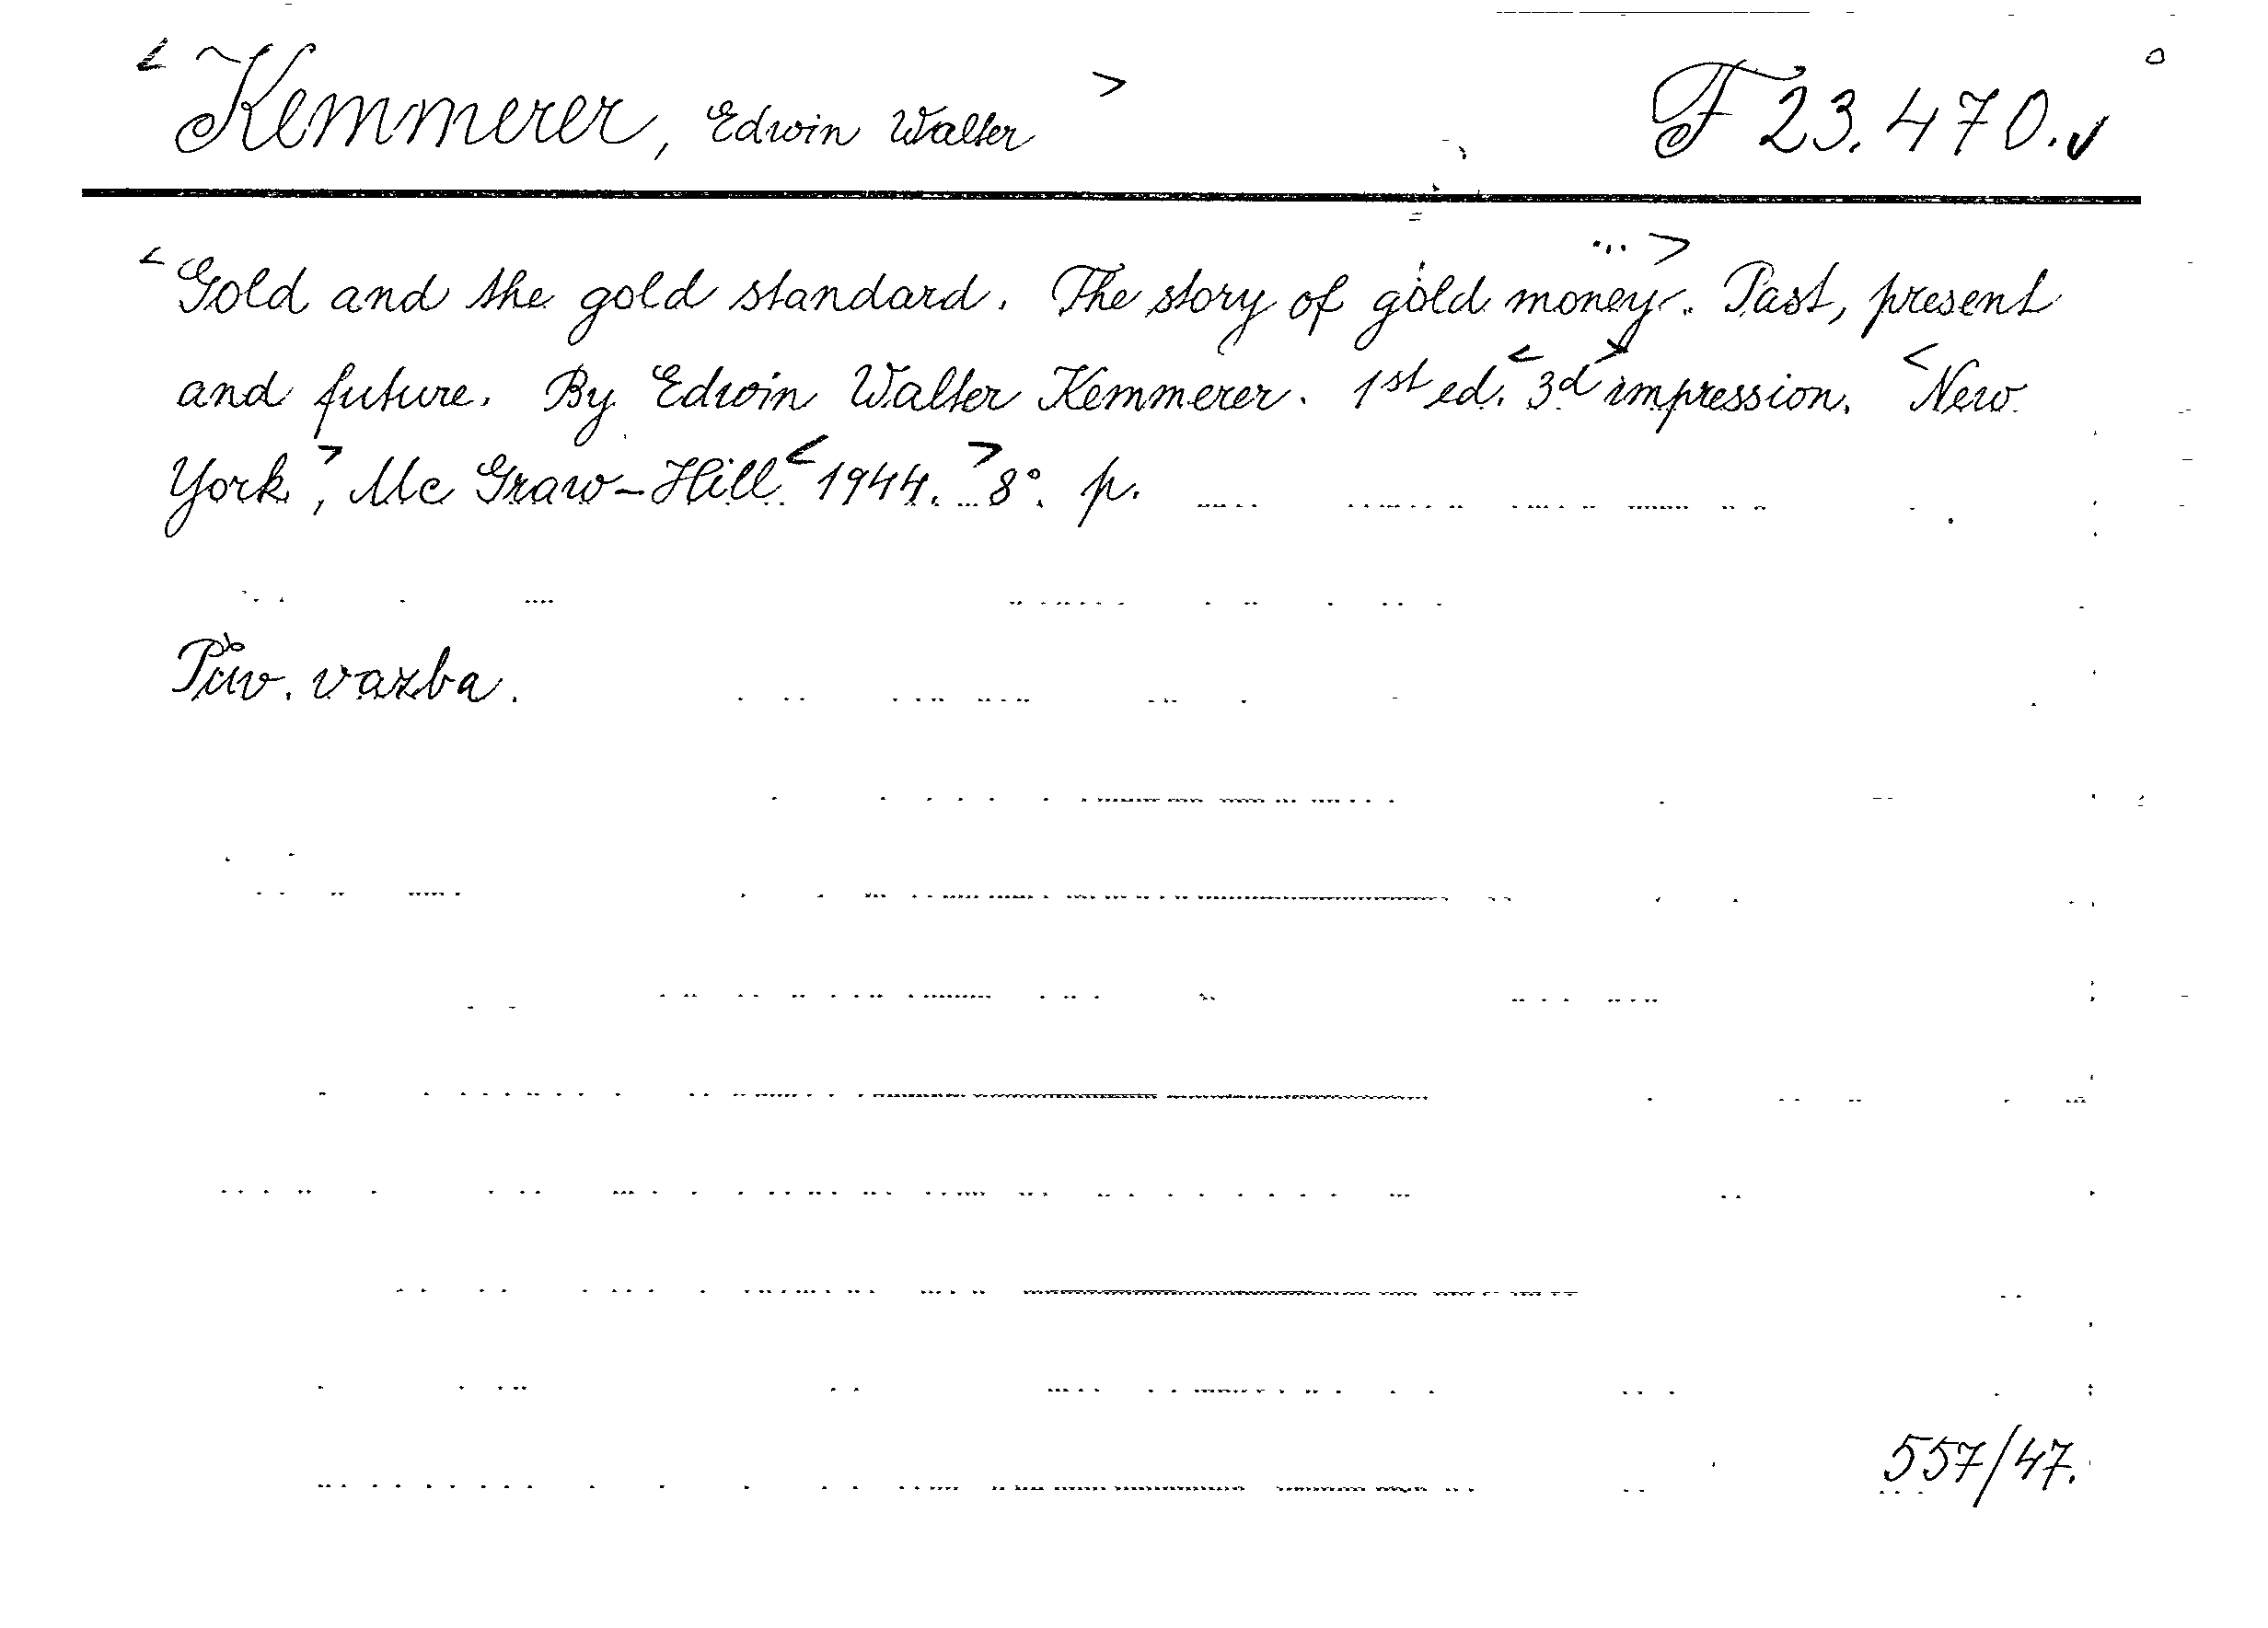 <Kemmerer, Edwin Walter> F 23.470.✓
<Gold and the gold standard. The story of gold money...>. Past, present
and future. By Edwin Walter Kemmerer. 1st ed. <3d> impression. <New
York>, Mc Graw-Hill <1944.> 8°. p.
Pův. vazba.
557/47.